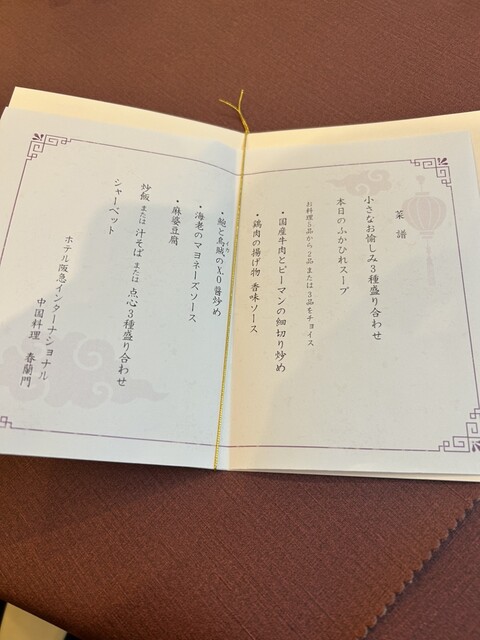 菜譜
小さなお愉しみ3種盛り合わせ
本日のふかひれスープ
お料理5品から2品または3品をチョイス
・国産牛肉とピーマンの細切り炒め
・鶏肉の揚げ物 香味ソース
・鮑と烏賊のX.O醬炒め
・海老のマヨネーズソース
・麻婆豆腐
炒飯 または 汁そば または 点心3種盛り合わせ
シャーベット
ホテル阪急インターナショナル
中国料理 春蘭門